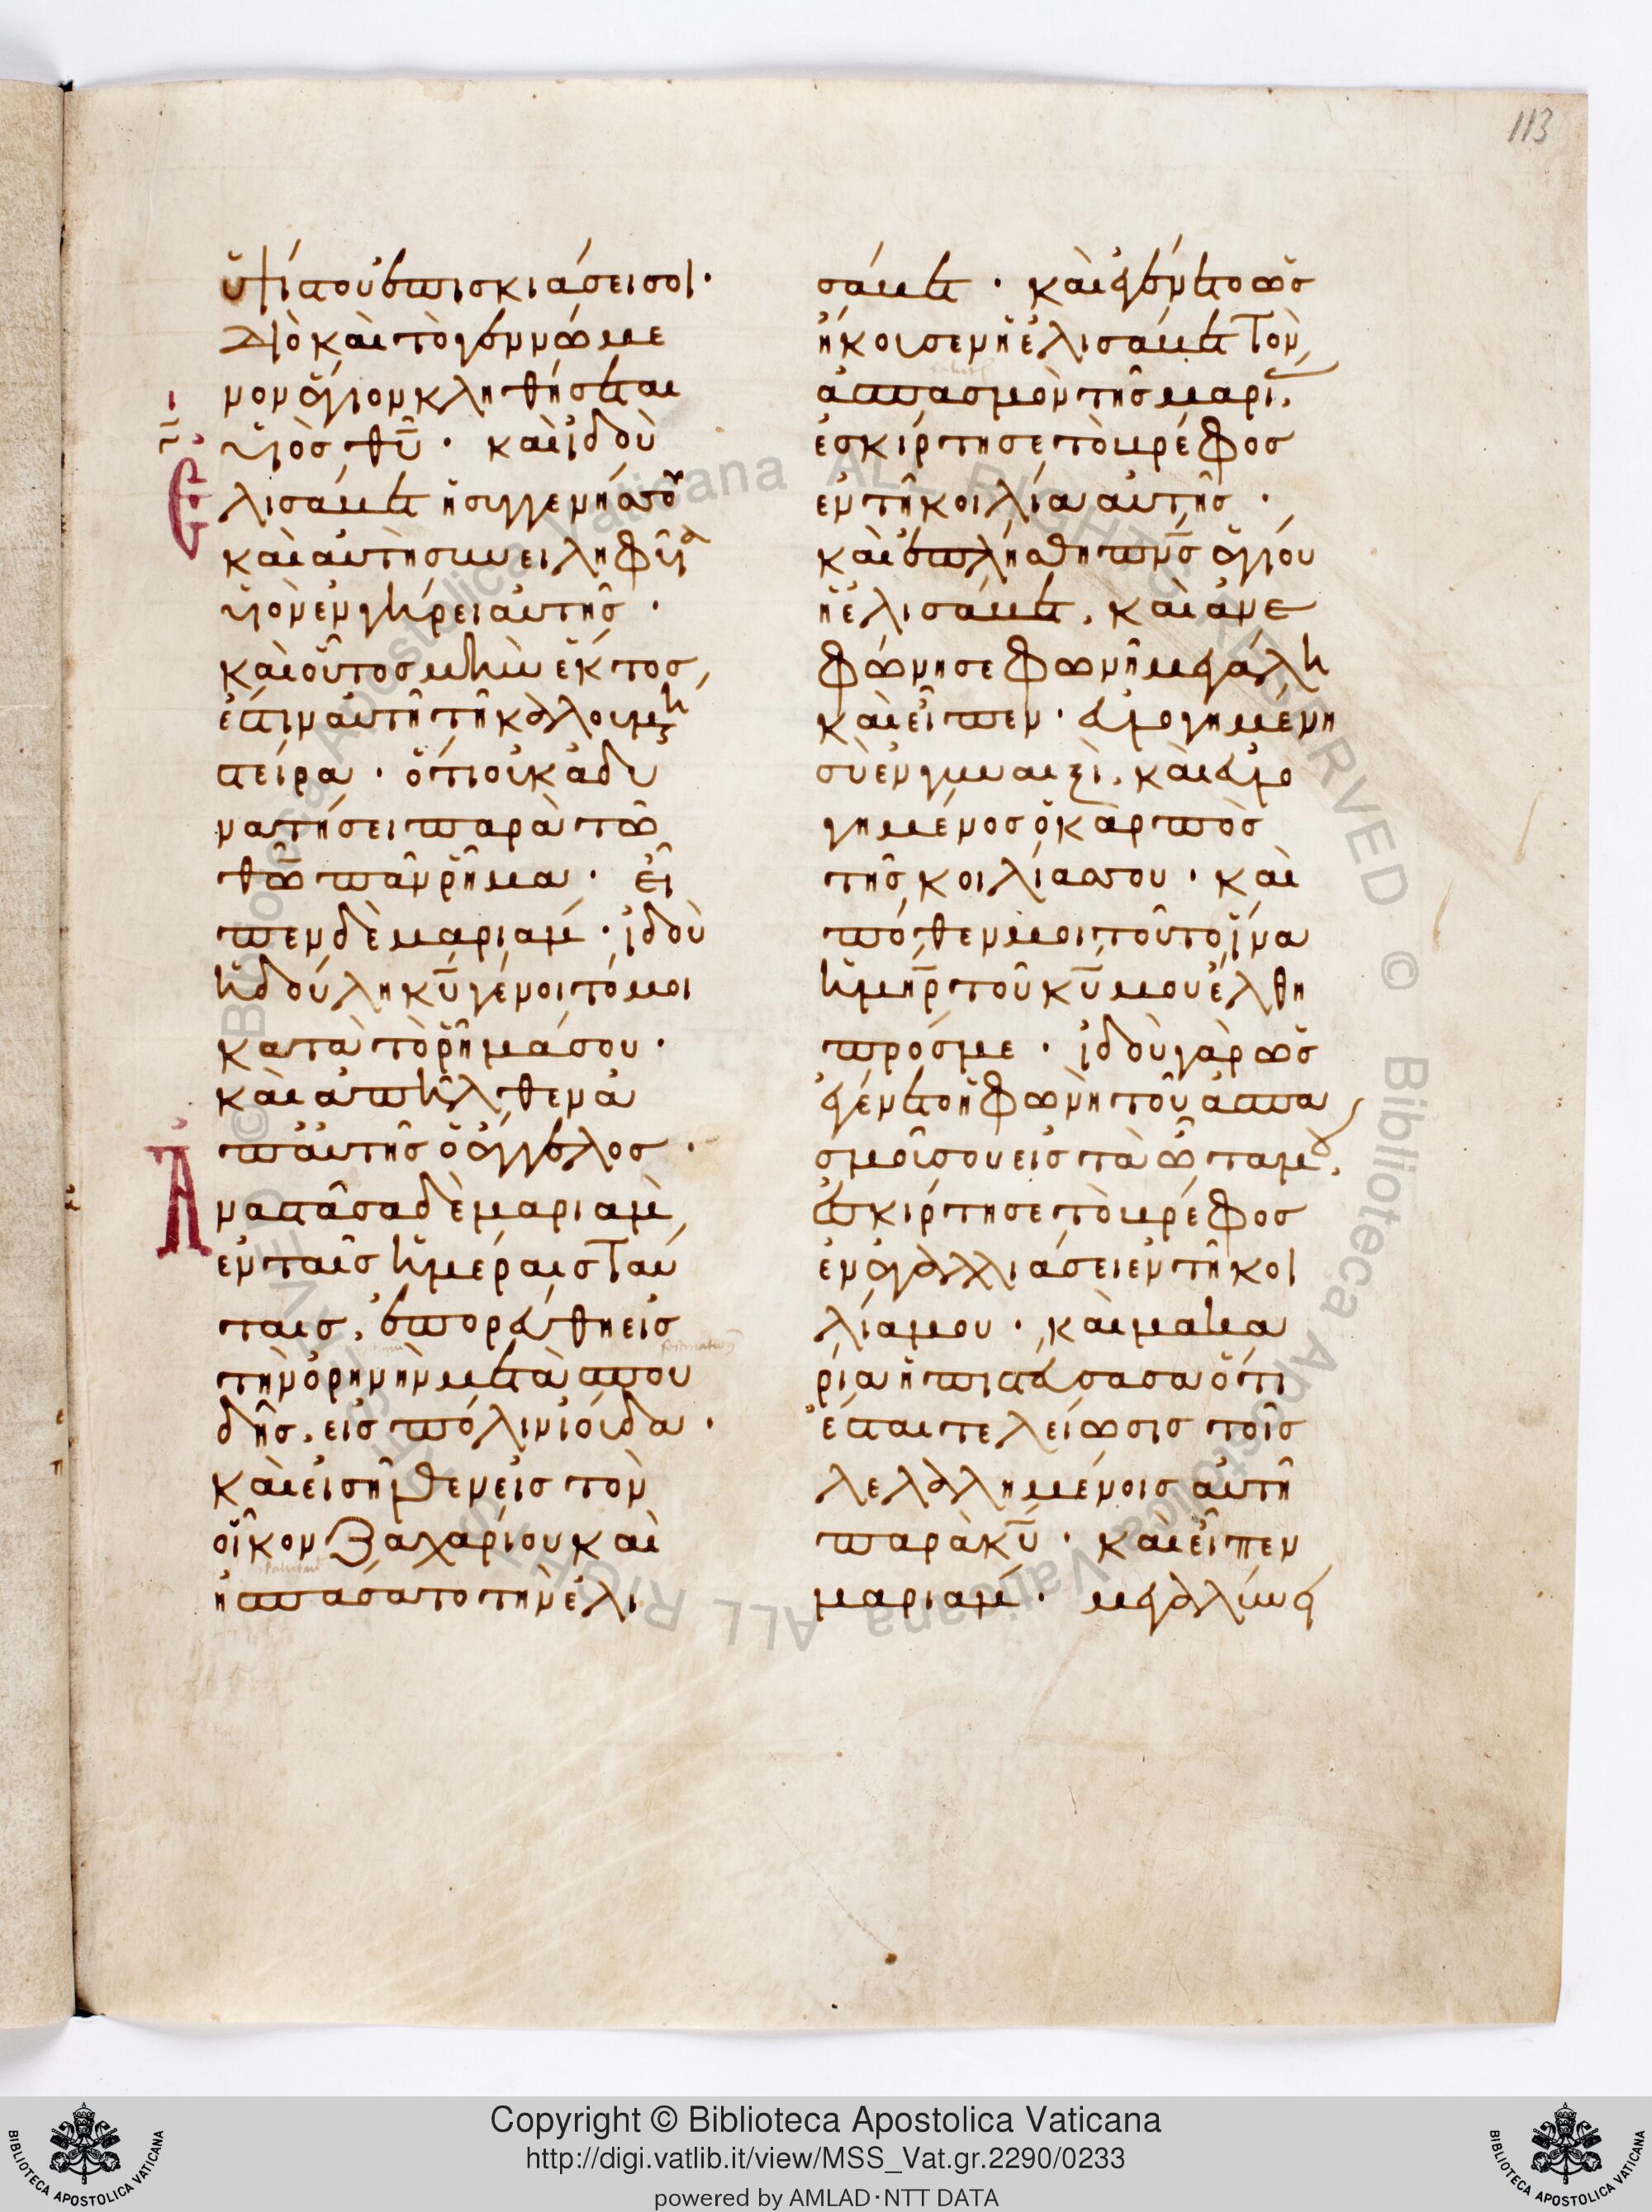 113
ὑψίστου ἐπισκιάσει σοι·
διὸ καὶ τὸ γεννώμε
νον ἅγιον κληθήσεται
υἱὸς θῦ· καὶ ἰδοὺ
Ἐλισάβετ ἡ συγγενής σου
καὶ αὐτὴ συνειληφυῖα
υἱὸν ἐν γήρει αὐτῆς·
καὶ οὗτος μὴν ἕκτος
ἐστὶν αὐτῆ τῆ καλουμένη
στείρα· ὅτι οὐκ ἀδυ
νατήσει παρὰ τῶ
θῶ πᾶν ῥῆμα· εἶ
πεν δὲ μαριάμ· ἰδοὺ
ἡ δούλη κῦ γένοιτό μοι
κατὰ τὸ ῥῆμά σου·
καὶ ἀπῆλθεν ἀ
π' αὐτῆς ὁ ἄγγελος·
Ἀναστᾶσα δὲ μαριὰμ
ἐν ταῖς ἡμέραις ταύ
ταις, ἐπορεύθη εἰς
τὴν ὀρηνὴν μετὰ σπου
δῆς, εἰς πόλιν ἰούδα·
καὶ εἰσῆλθεν εἰς τὸν
οἶκον Ζαχαρίου καὶ
ἠσπάσατο τὴν ἐλι
σάβετ· καὶ ἐγένετο ὡς
ἤκουσεν ἡ ἐλισάβετ τὸν
ἀσπασμὸν τῆς μαρίας,
ἐσκίρτησε τὸ βρέφος
ἐν τῆ κοιλία αὐτῆς·
καὶ ἐπλήσθη πνς ἁγίου
ἡ ἐλισάβετ, καὶ ἀνε
φώνησε φωνῆ μεγάλη
καὶ εἶπεν· εὐλογημένη
σὺ ἐν γυναιξὶ, καὶ εὐλο
γημένος ὁ καρπὸς
τῆς κοιλίας σου· καὶ
πόθεν μοι τοῦτο ἵνα
ἡ μηρ τοῦ κῦ μου ἔλθη
πρός με· ἰδοὺ γὰρ ὡς
ἐγένετο ἡ φωνὴ τοῦ ἀσπα
σμοῦ σου εἰς τὰ ὦτα μου,
ἐσκίρτησε τὸ βρέφος
ἐν ἀγαλλιάσει ἐν τῆ κοι
λία μου· καὶ μακα
ρία ἡ πιστεύσασα ὅτι
ἔσται τελείωσις τοῖς
λελαλημένοις αὐτῆ
παρὰ κῦ· καὶ εἶπεν
μαριάμ· μεγαλύνει
Copyright © Biblioteca Apostolica Vaticana
http://digi.vatlib.it/view/MSS_Vat.gr.2290/0233
powered by AMLAD·NTT DATA
BIBLIOTECA APOSTOLICA VATICANA
BIBLIOTECA APOSTOLICA VATICANA
© Biblioteca Apostolica Vaticana ALL RIGHTS RESERVED © Biblioteca Apostolica Vaticana ALL RIGHTS RESERVED